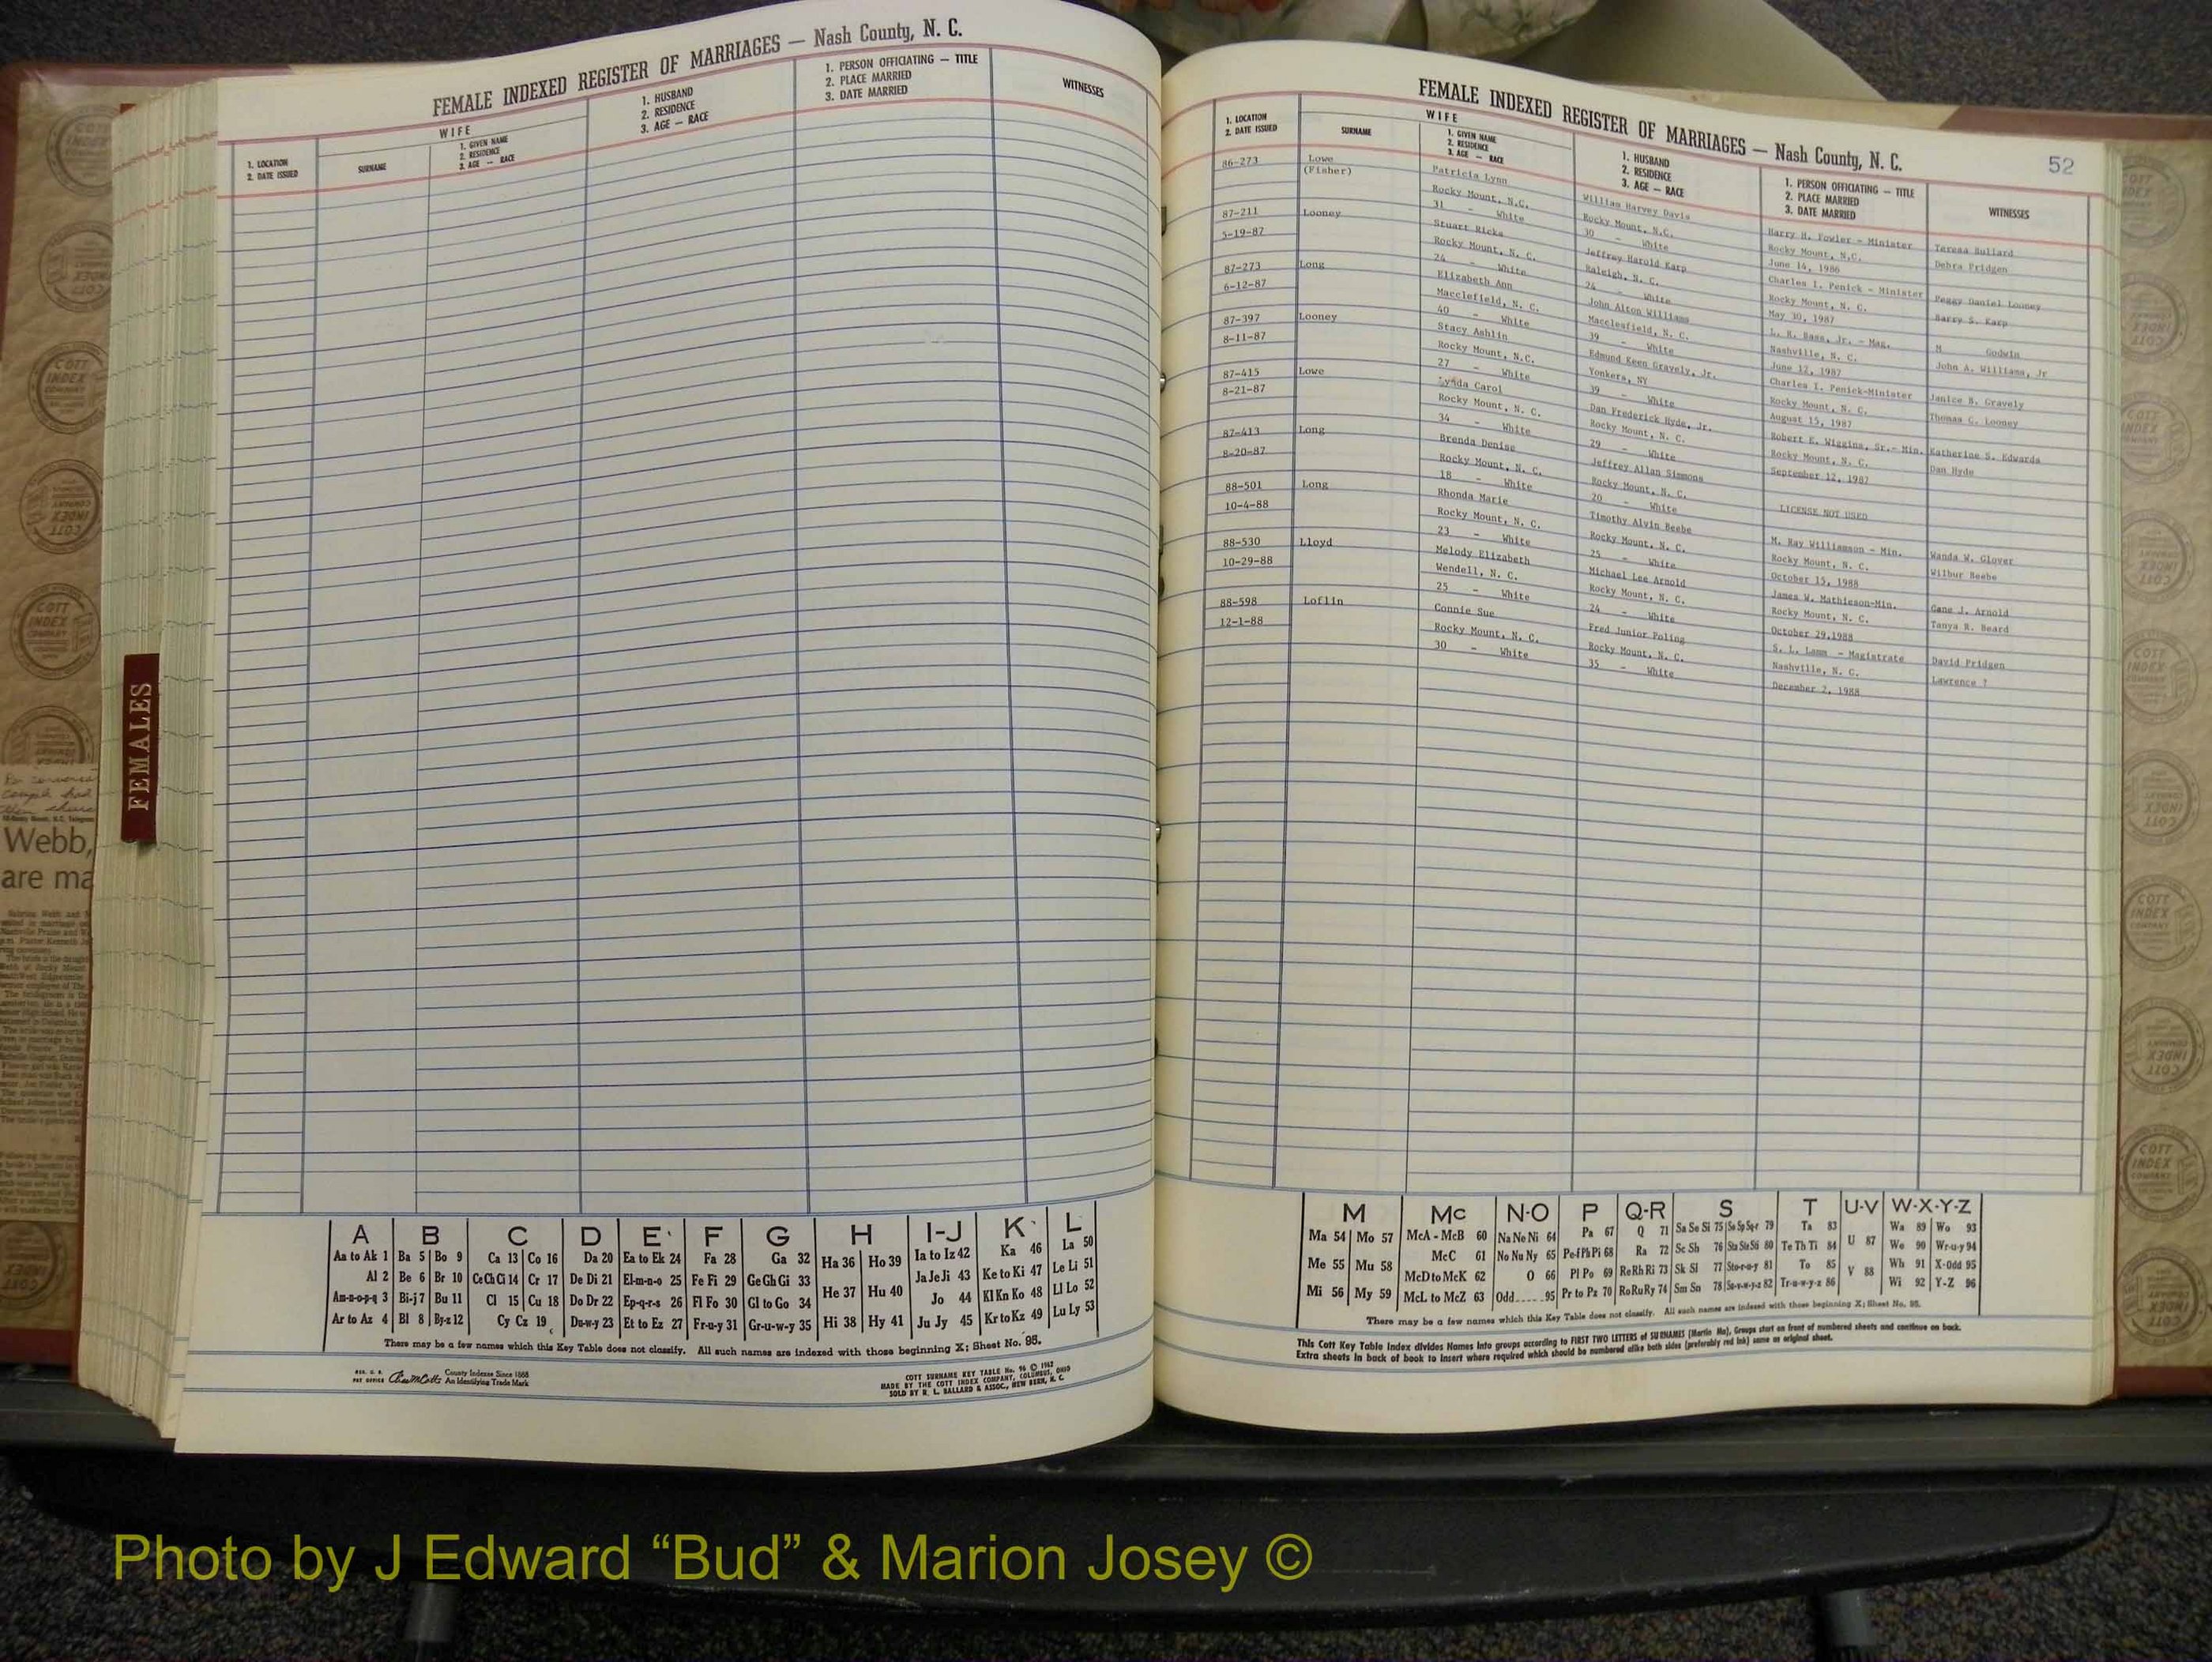 FEMALE INDEXED REGISTER OF MARRIAGES — Nash County, N. C.
1. LOCATION
2. DATE ISSUED
WIFE
SURNAME
1. GIVEN NAME
2. RESIDENCE
3. AGE — RACE
1. HUSBAND
2. RESIDENCE
3. AGE — RACE
1. PERSON OFFICIATING — TITLE
2. PLACE MARRIED
3. DATE MARRIED
WITNESSES
FEMALES
Webb,
are ma
A B C D E F G H I-J K L
Aa to Ak 1 Ba 5 Bo 9 Ca 13 Co 16 Da 20 Ea to Ek 24 Fa 28 Ga 32 Ha 36 Ho 39 Ia to Iz 42 Ka 46 La 50
Al 2 Be 6 Br 10 Ce Ch Ci 14 Cr 17 De Di 21 El-m-n-o 25 Fe Fi 29 Ge Gh Gi 33 He 37 Hu 40 Ja Je Ji 43 Ke to Ki 47 Le Li 51
Am-n-o-p-q 3 Bi-j 7 Bu 11 Cl 15 Cu 18 Do Dr 22 Ep-q-r-s 26 Fl Fo 30 Gl to Go 34 Hi 38 Hy 41 Jo 44 Kl Kn Ko 48 Ll Lo 52
Ar to Az 4 Bl 8 By-z 12 Cy Cz 19 Du-w-y 23 Et to Ez 27 Fr-u-y 31 Gr-u-w-y 35 Ju Jy 45 Kr to Kz 49 Lu Ly 53
There may be a few names which this Key Table does not classify. All such names are indexed with those beginning X; Sheet No. 95.
County Indexes Since 1888
An Identifying Trade Mark
COTT SURNAME KEY TABLE No. 96 © 1962
MADE BY THE COTT INDEX COMPANY, COLUMBUS, OHIO
SOLD BY R. L. BALLARD & ASSOC., NEW BERN, N. C.
FEMALE INDEXED REGISTER OF MARRIAGES — Nash County, N. C.
52
1. LOCATION
2. DATE ISSUED
WIFE
SURNAME
1. GIVEN NAME
2. RESIDENCE
3. AGE — RACE
1. HUSBAND
2. RESIDENCE
3. AGE — RACE
1. PERSON OFFICIATING — TITLE
2. PLACE MARRIED
3. DATE MARRIED
WITNESSES
86-273 Lowe Patricia Lynn William Harvey Davis Harry H. Fowler - Minister Teresa Bullard
(Fisher) Rocky Mount, N.C. Rocky Mount, N.C. Rocky Mount, N.C. Debra Pridgen
31 - White 30 - White June 14, 1986
87-211 Looney Stuart Ricks Jeffrey Harold Karp Charles I. Penick - Minister Peggy Daniel Looney
5-19-87 Rocky Mount, N. C. Raleigh, N. C. Rocky Mount, N. C. Barry S. Karp
24 - White 24 - White May 30, 1987
87-273 Long Elizabeth Ann John Alton Williams L. R. Bass, Jr. - Mag. M Godwin
6-12-87 Macclefield, N. C. Macclesfield, N. C. Nashville, N. C. John A. Williams, Jr
40 - White 39 - White June 12, 1987
87-397 Looney Stacy Ashlin Edmund Keen Gravely, Jr. Charles I. Penick-Minister Janice B. Gravely
8-11-87 Rocky Mount, N.C. Yonkers, NY Rocky Mount, N. C. Thomas C. Looney
27 - White 39 - White August 15, 1987
87-415 Lowe Lynda Carol Dan Frederick Hyde, Jr. Robert E. Wiggins, Sr.- Min. Katherine S. Edwards
8-21-87 Rocky Mount, N. C. Rocky Mount, N. C. Rocky Mount, N. C. Dan Hyde
34 - White 29 - White September 12, 1987
87-413 Long Brenda Denise Jeffrey Allan Simmons
8-20-87 Rocky Mount, N. C. Rocky Mount, N. C. LICENSE NOT USED
18 - White 20 - White
88-501 Long Rhonda Marie Timothy Alvin Beebe M. Ray Williamson - Min. Wanda W. Glover
10-4-88 Rocky Mount, N. C. Rocky Mount, N. C. Rocky Mount, N. C. Wilbur Beebe
23 - White 25 - White October 15, 1988
88-530 Lloyd Melody Elizabeth Michael Lee Arnold James W. Mathieson-Min. Gene J. Arnold
10-29-88 Wendell, N. C. Rocky Mount, N. C. Rocky Mount, N. C. Tanya R. Beard
25 - White 24 - White October 29,1988
88-598 Loflin Connie Sue Fred Junior Poling S. L. Lamm - Magistrate David Pridgen
12-1-88 Rocky Mount, N. C. Rocky Mount, N. C. Nashville, N. C. Lawrence ?
30 - White 35 - White December 2, 1988
M Mc N-O P Q-R S T U-V W-X-Y-Z
Ma 54 Mo 57 McA - McB 60 Na Ne Ni 64 Pa 67 Q 71 Sa Se Si 75 So Sp Sq-r 79 Ta 83 U 87 Wa 89 Wo 93
Me 55 Mu 58 McC 61 No Nu Ny 65 Pe-f Ph Pi 68 Ra 72 Sc Sh 76 Sta Ste Sti 80 Te Th Ti 84 V 88 We 90 Wr-u-y 94
Mi 56 My 59 McD to McK 62 O 66 Pl Po 69 Re Rh Ri 73 Sk Sl 77 Sto-r-u-y 81 To 85 Wh 91 X-Odd 95
McL to McZ 63 Odd 95 Pr to Pz 70 Ro Ru Ry 74 Sm Sn 78 Su-v-w-y-z 82 Tr-u-w-y-z 86 Wi 92 Y-Z 96
There may be a few names which this Key Table does not classify. All such names are indexed with those beginning X; Sheet No. 95.
This Cott Key Table Index divides Names into groups according to FIRST TWO LETTERS of SURNAMES (Martin Ma), Groups start on front of numbered sheets and continue on back.
Extra sheets in back of book to insert where required which should be numbered alike both sides (preferably red ink) same as original sheet.
Photo by J Edward “Bud” & Marion Josey ©